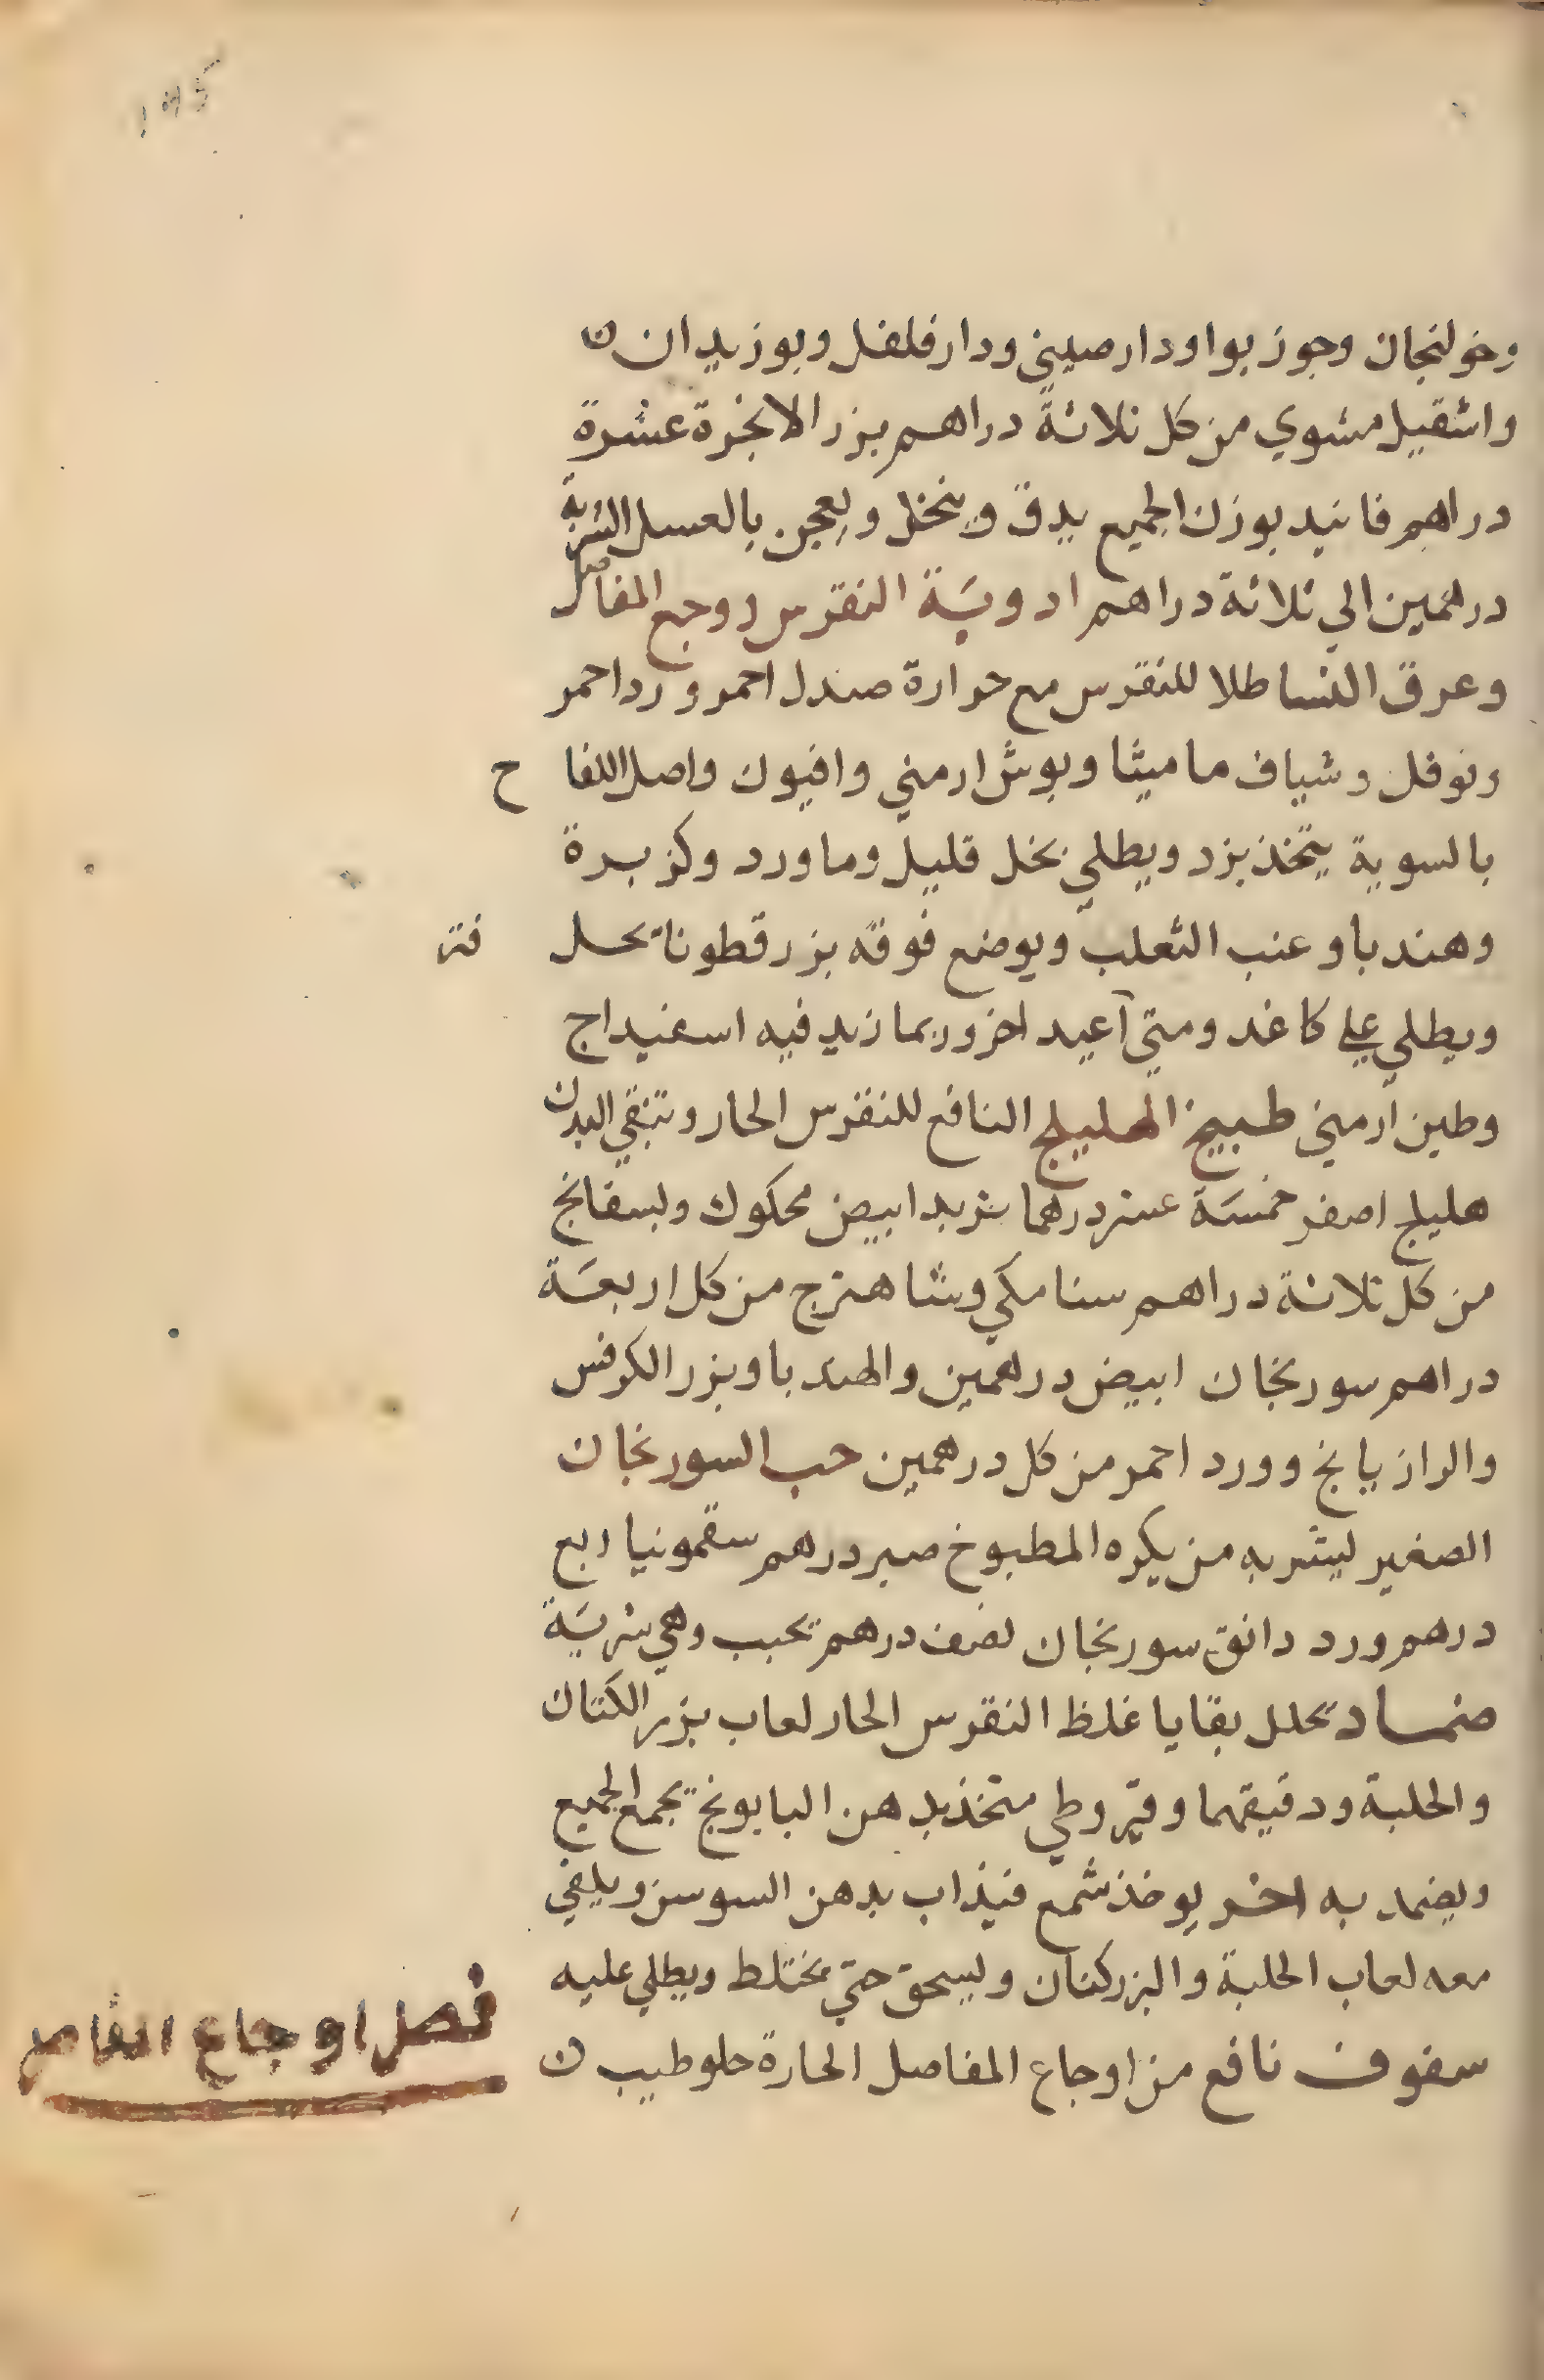 وخولنجان وجوز بوا ودارصيني ودارفلفل وبوزيدان
واشقيل مشوي من كل ثلاثة دراهم بزر الانجرة عشرة
دراهم فانيد بوزن الجميع يدق وينخل ويعجن بالعسل الشربة
درهمين الي ثلاثة دراهم ادوية النقرس ووجع المفاصل
وعرق النسا طلا للنقرس مع حرارة صندل احمر ورد احمر
وفوفل وشياف ماميثا وبوش ارمني وافيون واصل اللفاح
بالسوية يتخذ بزد ويطلي بخل قليل وماورد وكزبرة
وهندبا وعنب الثعلب ويوضع فوقه بزرقطونا بحل
ويطلي علي كاغد ومتي اعيد اخر وربما زيد فيه اسفيداج
وطين ارمني طبيخ الهليلج النافع للنقرس الحار وتنقي البدن
هليلج اصفر خمسة عشر درهما تربد ابيض محكوك وبسفانج
من كل ثلاثة دراهم سنا مكي وشاهترج من كل اربعة
دراهم سورنجان ابيض درهمين والهندبا وبزر الكرفس
والرازيانج وورد احمر من كل درهمين حب السورنجان
الصغير ليشربه من يكره المطبوخ صبر درهم سقمونيا ربع
درهم ورد دانق سورنجان نصف درهم يحبب وهي شربة
ضماد يحلل بقايا غلظ النقرس الحار لعاب بزر الكتان
والحلبة ودقيقهما وقيروطي متخذ بدهن البابونج يجمع الجميع
ويضمد به اخر يوخذ شمع فيذاب بدهن السوسن ويلقي
معه لعاب الحلبة والبزركتان ويسحق حتي يختلط ويطلي عليه
سفوف نافع من اوجاع المفاصل الحارة حلو طيب
فصل اوجاع